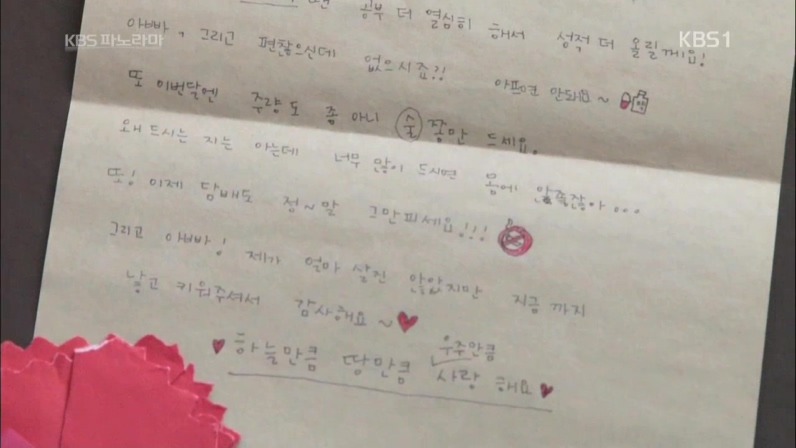 KBS 파노라마
KBS1
공부 더 열심히 해서 성적 더 올릴게요!
아빠, 그리고 편찮으신데 없으시죠?! 아프면 안돼요~
또 이번달엔 주량도 좀 아니 술 쫌만 드세요.
왜 드시는 지는 아는데 너무 많이 드시면 몸에 안좋잖아...
또! 이제 담배도 정~말 그만피세요!!!
그리고 아빠! 제가 얼마 살진 않았지만 지금 까지
낳고 키워주셔서 감사해요~
우주만큼
하늘만큼 땅만큼 사랑 해요